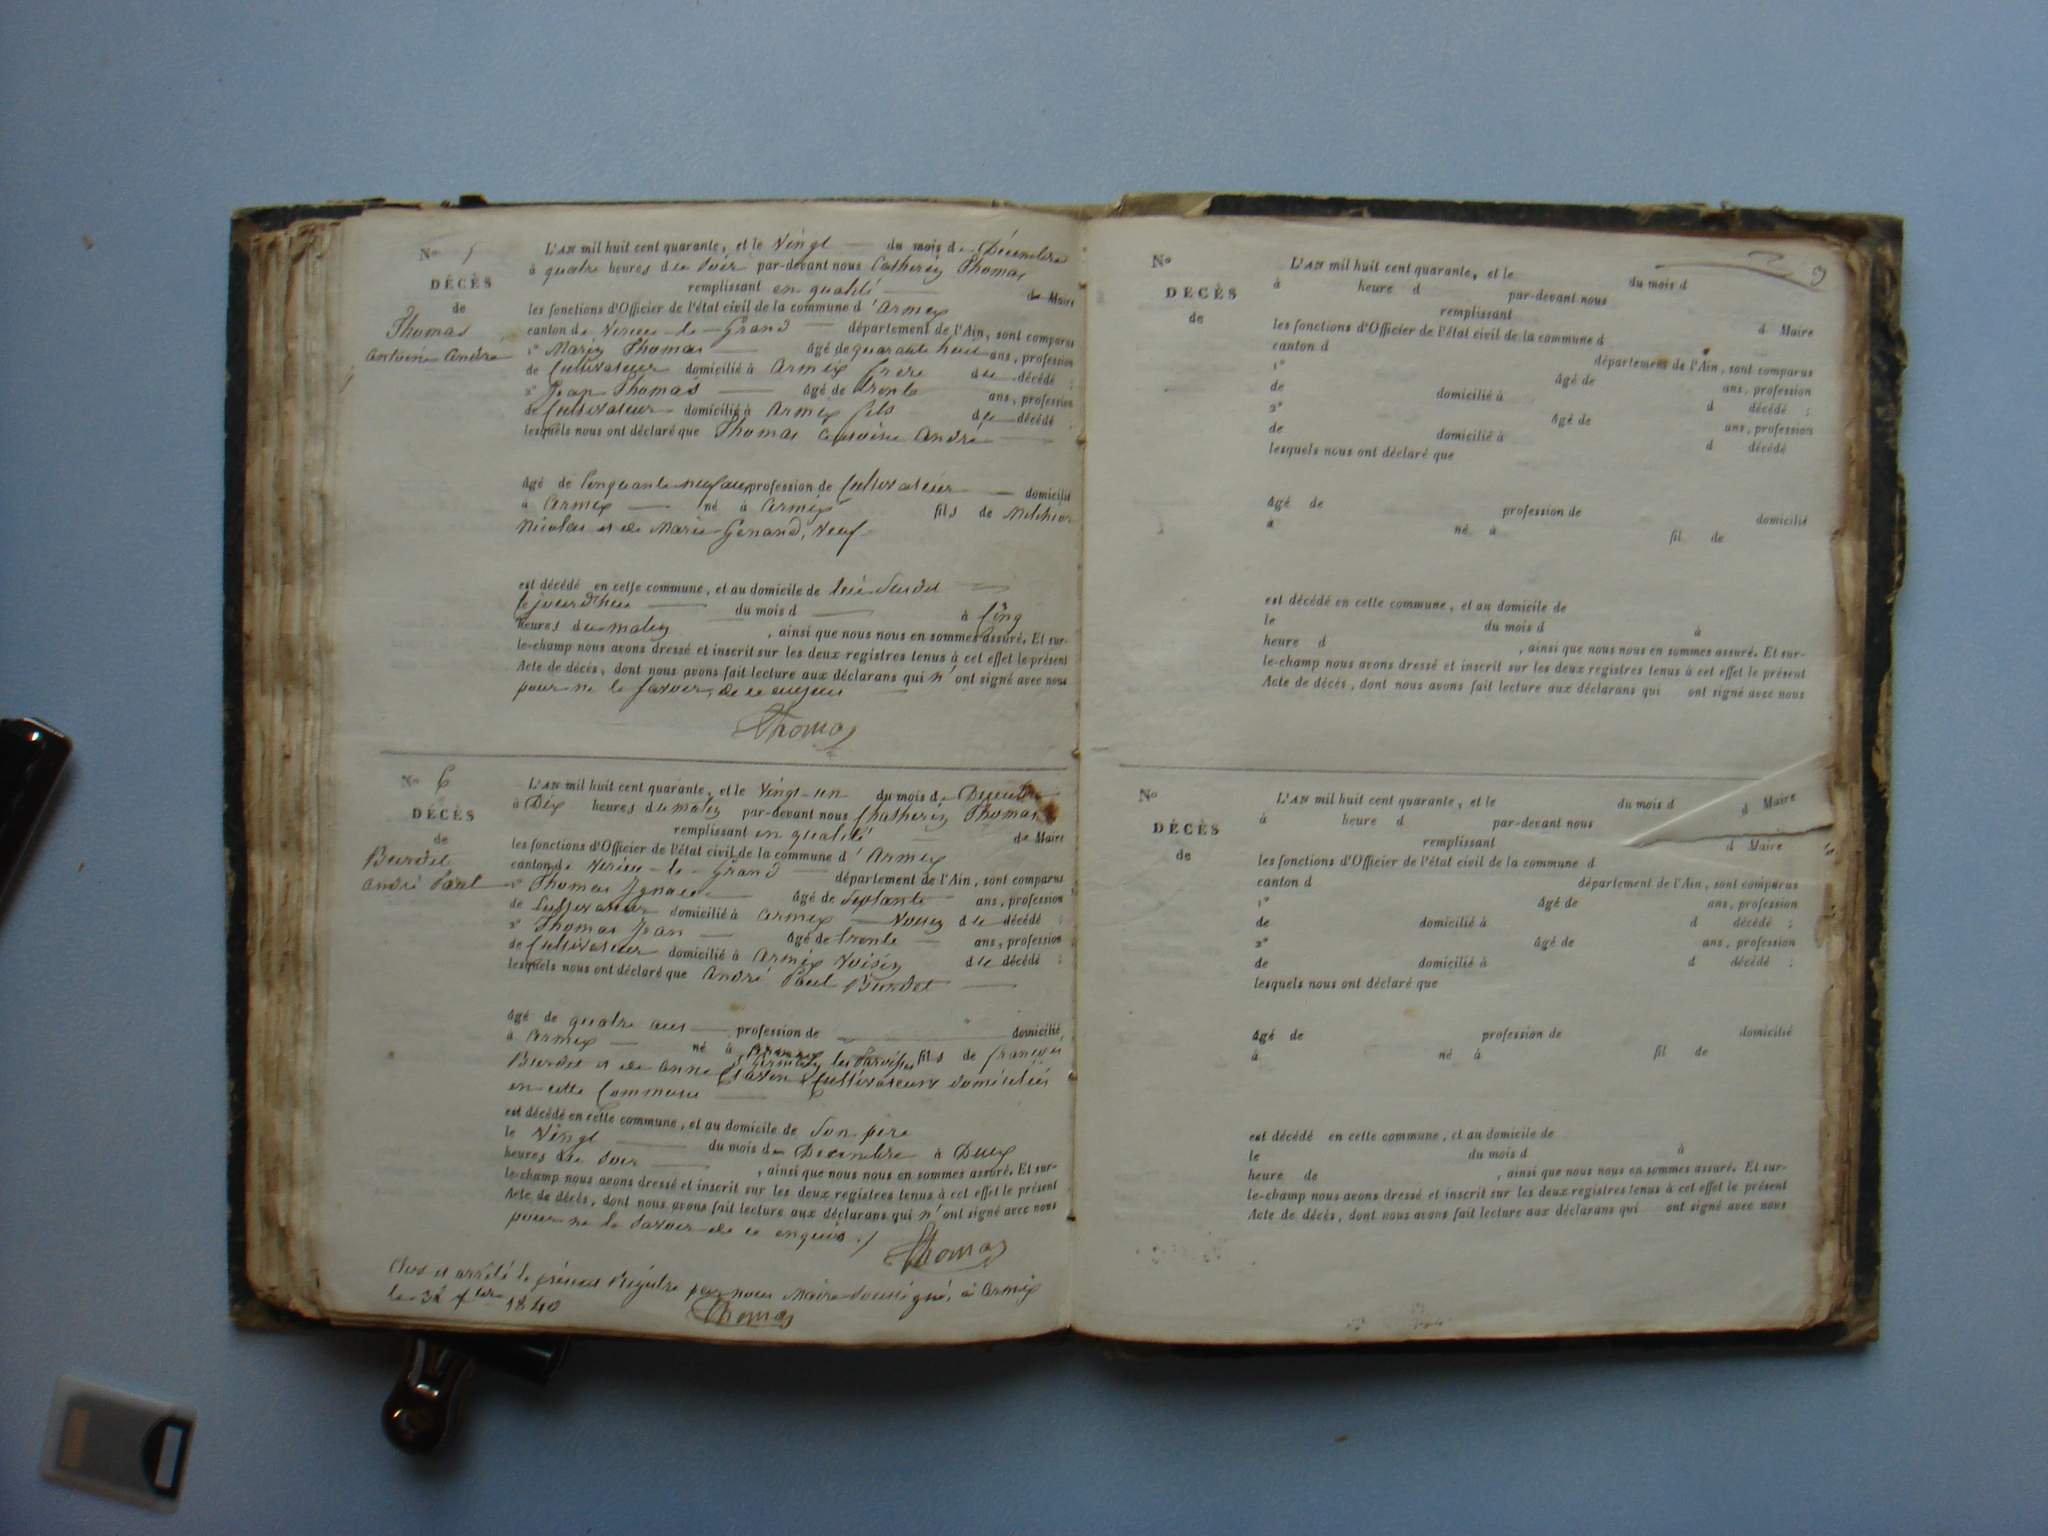 No 5
DÉCÈS
de
Thomas
antoine André
L'AN mil huit cent quarante, et le Vingt du mois de Décembre
à quatre heures du soir par-devant nous Catherin Thomas
remplissant en qualité de Maire
les fonctions d'Officier de l'état civil de la commune d'Armix
canton de Virieu-le-Grand département de l'Ain, sont comparus
1° Marin Thomas âgé de quarante huit ans, profession
de Cultivateur domicilié à Armix frere du décédé ;
2° Jean Thomas âgé de trente ans, profession
de Cultivateur domicilié à Armix fils du décédé ;
lesquels nous ont déclaré que Thomas antoine André
âgé de Cinquante neuf ans profession de Cultivateur domicilié
à Armix né à Armix fils de Melchior
Nicolas et de Marie Genand, Veuf
est décédé en cette commune, et au domicile de lui dudit
le jourd'hui du mois d à Cinq
heures du matin , ainsi que nous nous en sommes assuré. Et sur-
le-champ nous avons dressé et inscrit sur les deux registres tenus à cet effet le présent
Acte de décès, dont nous avons fait lecture aux déclarans qui n'ont signé avec nous
pour ne le savoir, de ce enquis
Thomas
No 6
DÉCÈS
de
Burdet
André Paul
L'AN mil huit cent quarante, et le Vingt-un du mois de Décembre
à Dix heures du matin par-devant nous Chatherin Thomas
remplissant en qualité de Maire
les fonctions d'Officier de l'état civil de la commune d'Armix
canton de Virieu-le-Grand département de l'Ain, sont comparus
1° Thomas Ignace âgé de Septante ans, profession
de Cultivateur domicilié à Armix Voisin du décédé ;
2° Thomas Jean âgé de trente ans, profession
de Cultivateur domicilié à Armix Voisin du décédé ;
lesquels nous ont déclaré que André Paul Burdet
âgé de quatre ans profession de domicilié
à Armix né à les Paroisses fils de françois
Burdet et de anne Cultivateurs domiciliés
en cette Commune
est décédé en cette commune, et au domicile de Son pere
le Vingt du mois de Décembre à Deux
heures du soir , ainsi que nous nous en sommes assuré. Et sur-
le-champ nous avons dressé et inscrit sur les deux registres tenus à cet effet le présent
Acte de décès, dont nous avons fait lecture aux déclarans qui n'ont signé avec nous
pour ne le savoir de ce enquis ./
Thomas
Clos et arrêté le présent Régistre par nous Maire soussigné, à Armix
le 31 Xbre 1840
Thomas
9
No
DÉCÈS
de
L'AN mil huit cent quarante, et le du mois d
à heure d par-devant nous
remplissant d Maire
les fonctions d'Officier de l'état civil de la commune d
canton d département de l'Ain, sont comparus
1° âgé de ans, profession
de domicilié à d décédé ;
2° âgé de ans, profession
de domicilié à d décédé
lesquels nous ont déclaré que
âgé de profession de domicilié
à né à fil de
est décédé en cette commune, et au domicile de
le du mois d à
heure d , ainsi que nous nous en sommes assuré. Et sur-
le-champ nous avons dressé et inscrit sur les deux registres tenus à cet effet le présent
Acte de décès, dont nous avons fait lecture aux déclarans qui ont signé avec nous
No
DÉCÈS
de
L'AN mil huit cent quarante, et le du mois d d Maire
à heure d par-devant nous
remplissant d Maire
les fonctions d'Officier de l'état civil de la commune d
canton d département de l'Ain, sont comparus
1° âgé de ans, profession
de domicilié à d décédé ;
2° âgé de ans, profession
de domicilié à d décédé ;
lesquels nous ont déclaré que
âgé de profession de domicilié
à né à fil de
est décédé en cette commune, et au domicile de
le du mois d à
heure de , ainsi que nous nous en sommes assuré. Et sur-
le-champ nous avons dressé et inscrit sur les deux registres tenus à cet effet le présent
Acte de décès, dont nous avons fait lecture aux déclarans qui ont signé avec nous